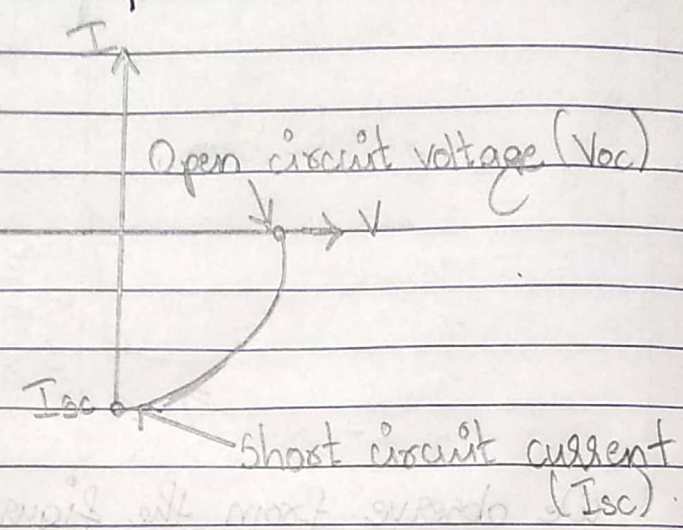 I
Open circuit voltage (Voc)
V
Isc
Short circuit current
(Isc).